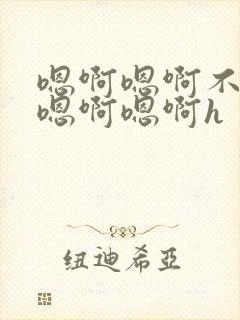 嗯啊嗯啊不
嗯啊嗯啊h
纽迪希亞